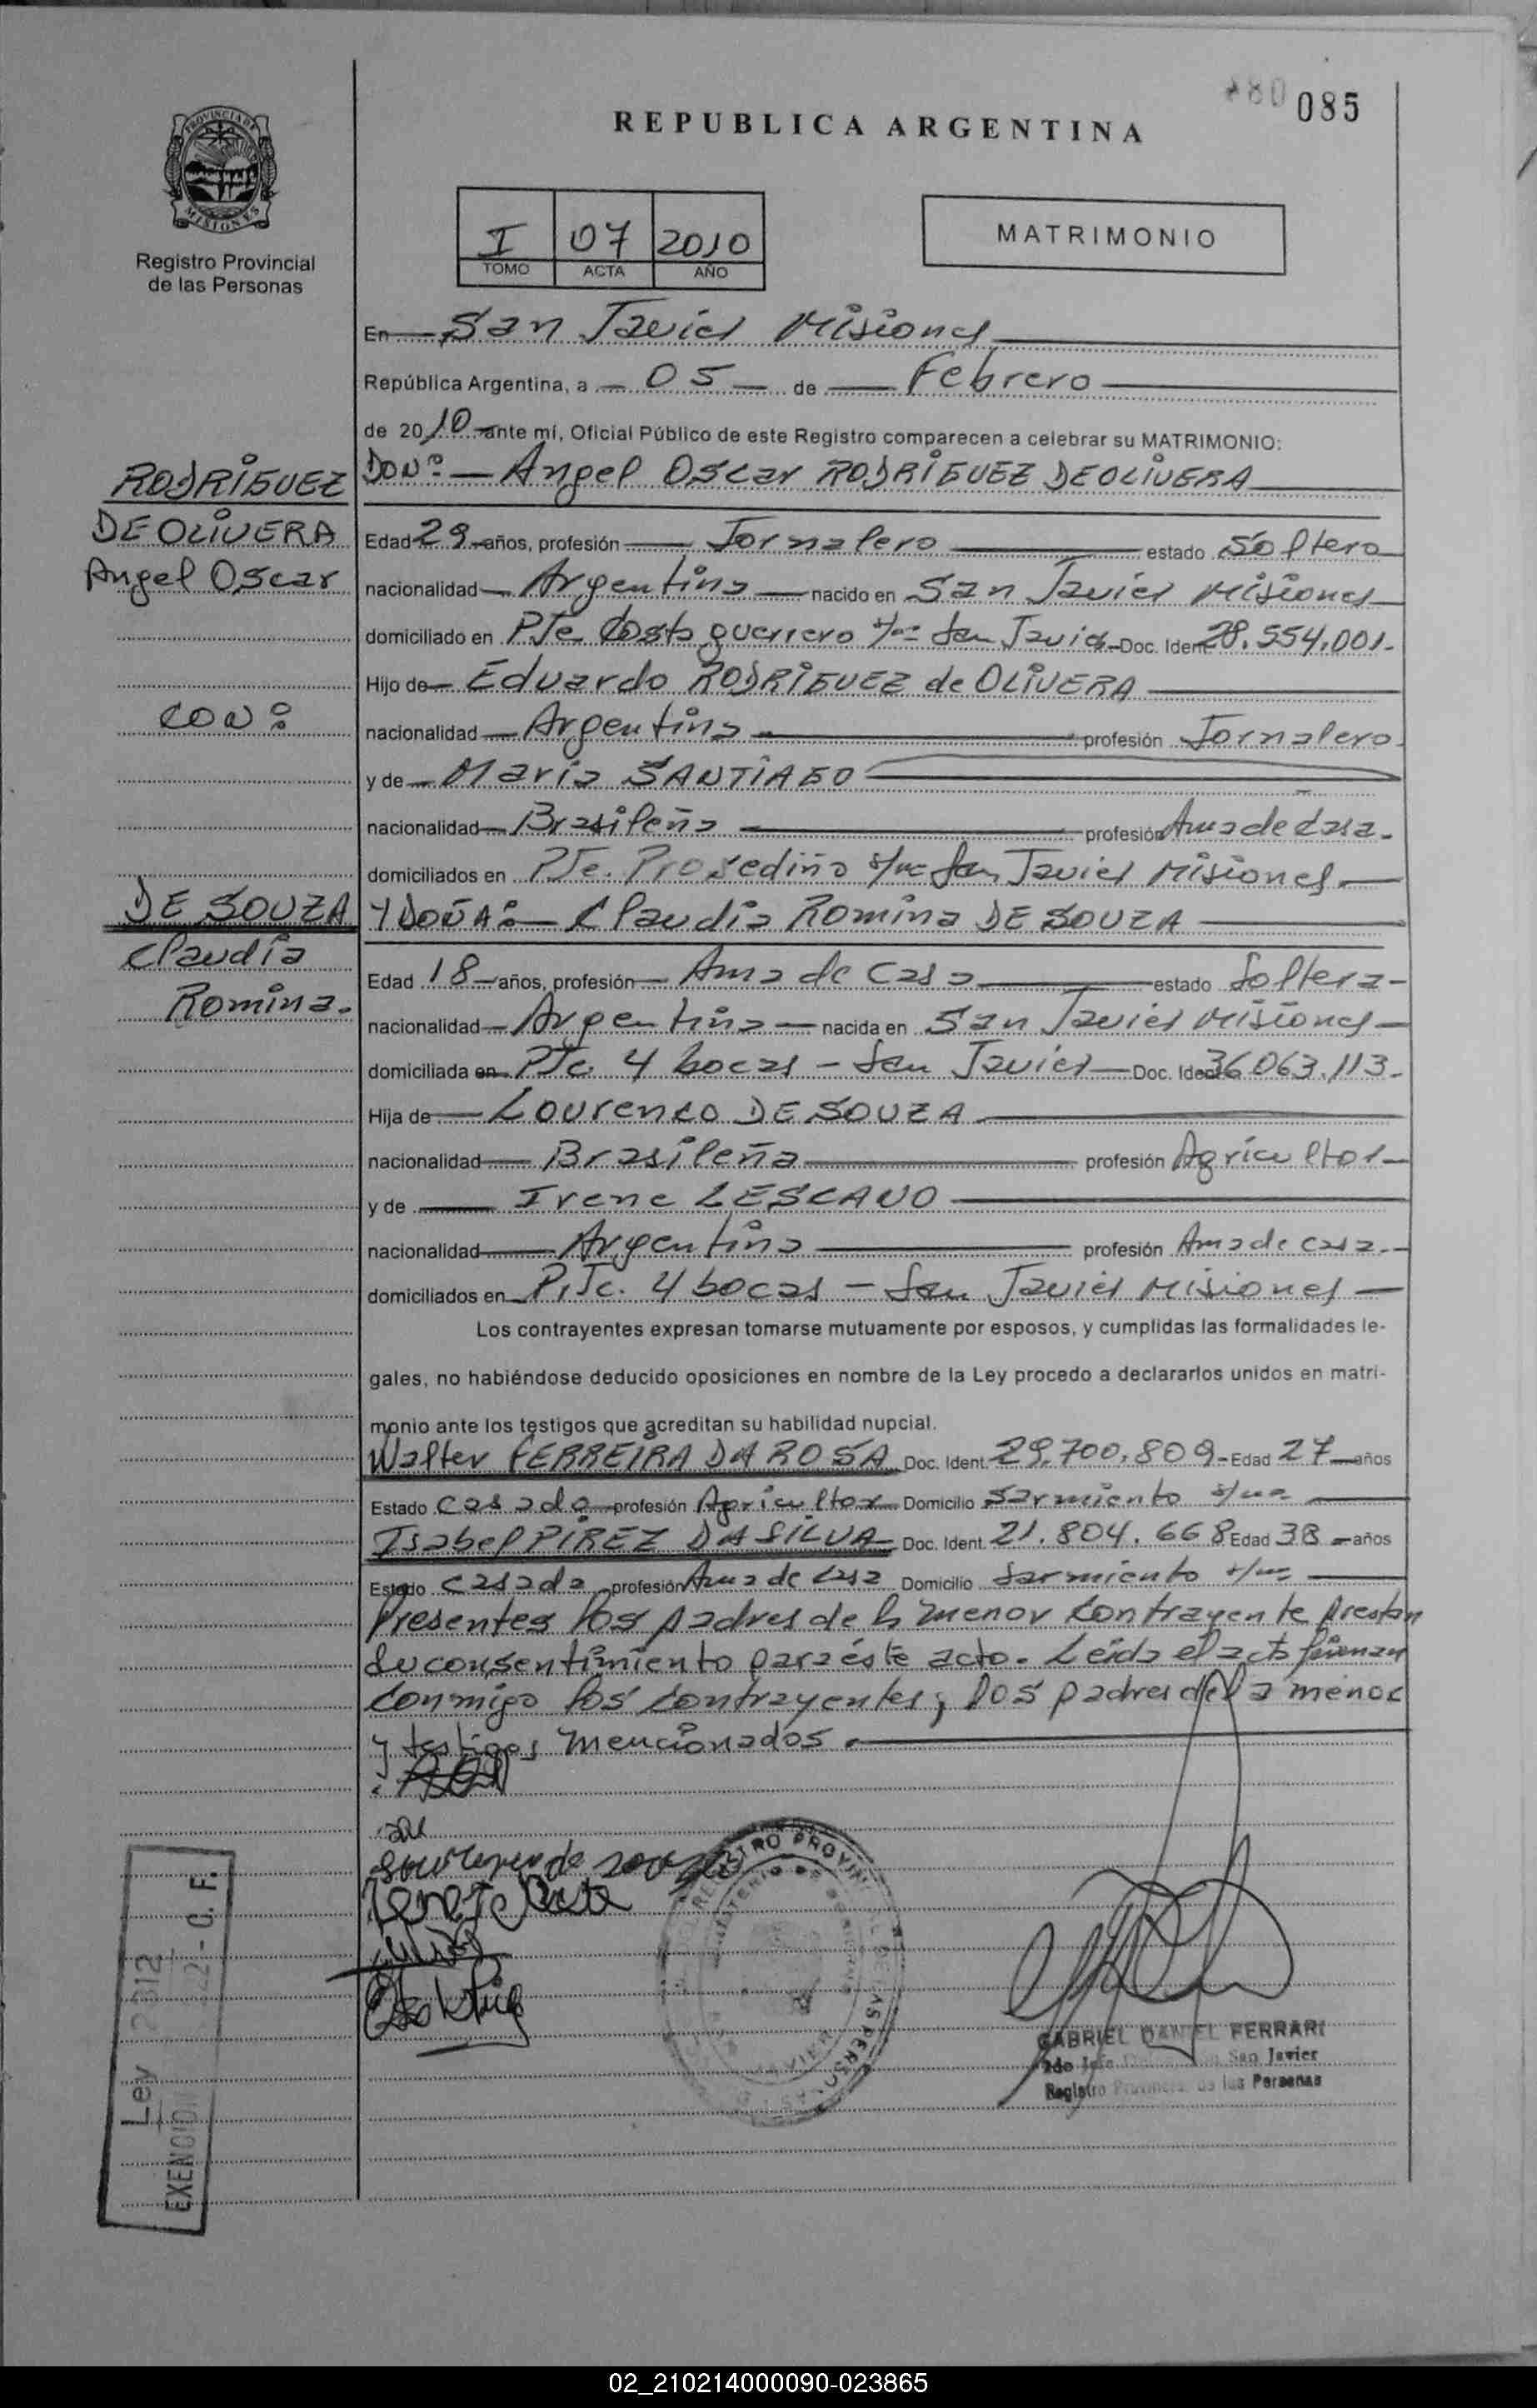 085
REPUBLICA ARGENTINA
PROVINCIA DE
MISIONES
Registro Provincial
de las Personas
I 07 2010
TOMO ACTA AÑO
MATRIMONIO
En San Javier Misiones
República Argentina, a 05 de Febrero
de 2010 ante mí, Oficial Público de este Registro comparecen a celebrar su MATRIMONIO:
RODRIGUEZ
DE OLIVERA
Angel Oscar
CON:
DE SOUZA
Claudia
Romina.
DON: Angel Oscar RODRIGUEZ DE OLIVERA
Edad 29 años, profesión Jornalero estado Soltero
nacionalidad Argentina nacido en San Javier Misiones
domiciliado en Pje Costa guerrero San Javier Doc. Ident 28.554.001.
Hijo de Eduardo RODRIGUEZ de OLIVERA
nacionalidad Argentina profesión Jornalero
y de Maria SANTIAGO
nacionalidad Brasileña profesión Ama de Casa.
domiciliados en Pje. San Javier Misiones
Y DOÑA: Claudia Romina DE SOUZA
Edad 18 años, profesión Ama de Casa estado Soltera
nacionalidad Argentina nacida en San Javier Misiones
domiciliada en Pje. 4 bocas - San Javier Doc. Ident 36.063.113.
Hija de Lourenco DE SOUZA
nacionalidad Brasileña profesión Agricultor
y de Irene LESCANO
nacionalidad Argentina profesión Ama de casa.
domiciliados en P.Je. 4 bocas - San Javier Misiones
Los contrayentes expresan tomarse mutuamente por esposos, y cumplidas las formalidades le-
gales, no habiéndose deducido oposiciones en nombre de la Ley procedo a declararlos unidos en matri-
monio ante los testigos que acreditan su habilidad nupcial.
Walter FERREIRA DA ROSA Doc. Ident. 29.700.809 Edad 27 años
Estado Casado profesión Agricultor Domicilio Sarmiento
Isabel PIREZ DA SILVA Doc. Ident. 21.804.668 Edad 38 años
Estado Casada profesión Ama de Casa Domicilio Sarmiento
Presentes los padres de la menor contrayente prestan
su consentimiento para éste acto. Leída el acta firman
conmigo los contrayentes, los padres de la menor
y testigos mencionados.
GABRIEL DANIEL FERRARI
San Javier
Registro Provincial de las Personas
Ley
EXENCION
02_210214000090-023865